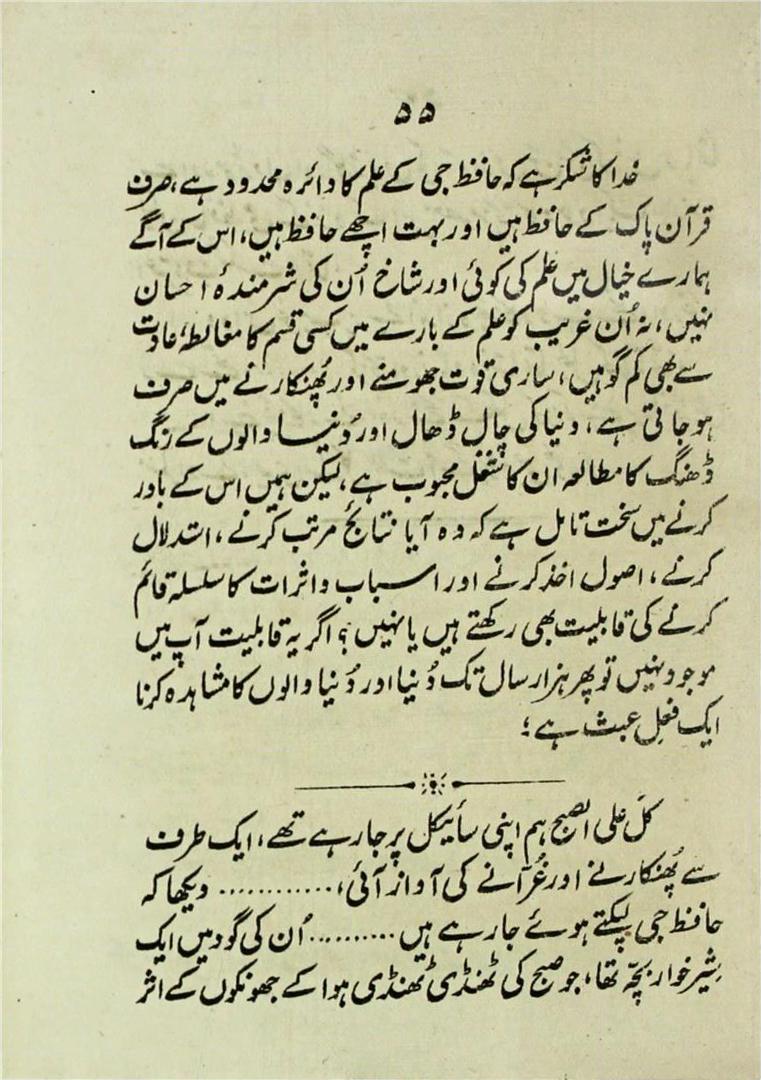 ۵۵
خدا کا شکر ہے کہ حافظ جی کے علم کا دائرہ محدود ہے، صرف
قرآن پاک کے حافظ ہیں اور بہت اچھے حافظ ہیں، اس کے آگے
ہمارے خیال میں علم کی کوئی اور شاخ اُن کی شرمندۂ احسان
نہیں، نہ اُن غریب کو علم کے بارے میں کسی قسم کا مغالطہ، عادت
سے بھی کم گو ہیں، ساری قوت جھومنے اور پُھنکارنے میں صرف
ہو جاتی ہے، دنیا کی چال ڈھال اور دُنیا والوں کے رنگ
ڈھنگ کا مطالعہ ان کا شغل محبوب ہے، لیکن ہمیں اس کے باور
کرنے میں سخت تامل ہے کہ وہ آیا نتائج مرتب کرنے، استدلال
کرنے، اصول اخذ کرنے اور اسباب و اثرات کا سلسلہ قائم
کرنے کی قابلیت بھی رکھتے ہیں یا نہیں؟ اگر یہ قابلیت آپ میں
موجود نہیں تو پھر ہزار سال تک دُنیا اور دُنیا والوں کا مشاہدہ کرنا
ایک فعلِ عبث ہے؛
کل علی الصبح ہم اپنی سائیکل پر جا رہے تھے، ایک طرف
سے پُھنکارنے اور غُرّانے کی آواز آئی، ............ دیکھا کہ
حافظ جی لپکتے ہوئے جا رہے ہیں .......... اُن کی گود میں ایک
شیرخوار بچّہ تھا، جو صبح کی ٹھنڈی ٹھنڈی ہوا کے جھونکوں کے اثر